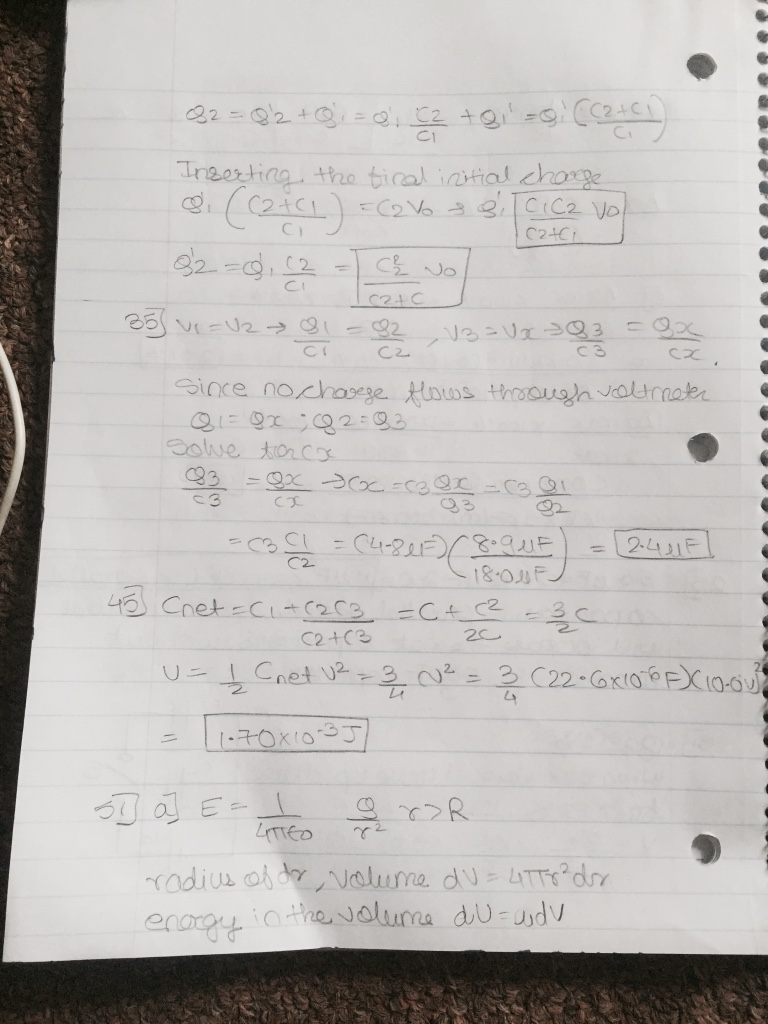 Q2 = Q'2 + Q'1 = Q'1 C2/C1 + Q1' = Q'1 (C2+C1/C1)
Inserting the final initial charge
Q'1 (C2+C1/C1) = C2V0 → Q'1 C1C2/C2+C1 V0
Q'2 = Q'1 C2/C1 = C2²/C2+C V0
35] V1 = V2 → Q1/C1 = Q2/C2, V3 = Vx → Q3/C3 = Qx/Cx.
Since no charge flows through voltmeter
Q1 = Qx ; Q2 = Q3
Solve for Cx
Q3/C3 = Qx/Cx → Cx = C3 Qx/Q3 = C3 Q1/Q2
= C3 C1/C2 = (4.8µF)(8.9µF/18.0µF) = 2.4µF
45] Cnet = C1 + C2C3/C2+C3 = C + C²/2C = 3/2 C
U = 1/2 Cnet V² = 3/4 CV² = 3/4 (22.6x10-6F)(10.0V)²
= 1.70x10-3J
51] a] E = 1/4πϵ0 Q/r² r>R
radius of dr, volume dV = 4πr²dr
energy in the volume dU = udV